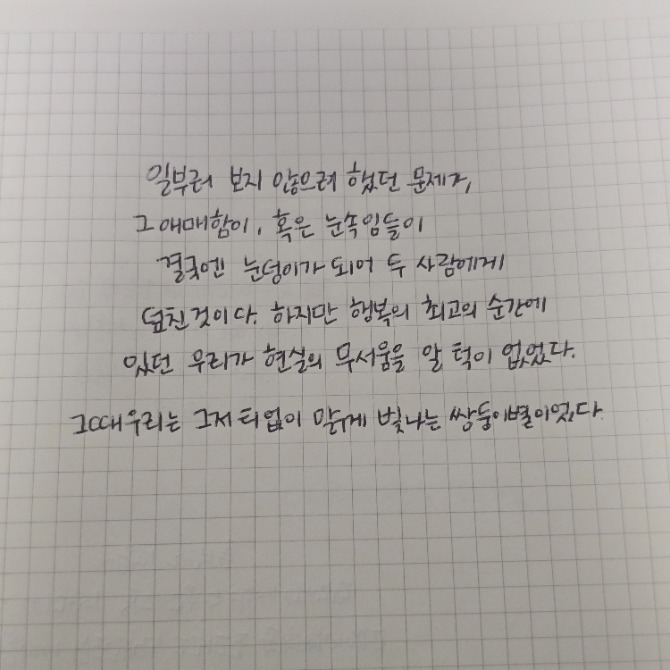 일부러 보지 않으려 했던 문제가,
그 애매함이, 혹은 눈속임들이
결국엔 눈덩이가 되어 두 사람에게
덮친것이다. 하지만 행복의 최고의 순간에
있던 우리가 현실의 무서움을 알 턱이 없었다.
그때 우리는 그저 티없이 맑게 빛나는 쌍둥이별이었다.